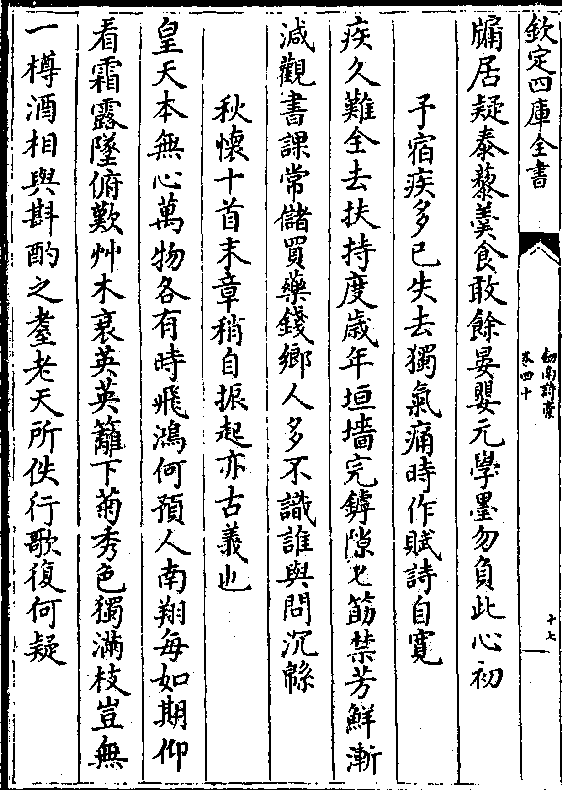 欽定四庫全書
劍南詩藁
卷四十
十七
牖居疑泰藜羮食敢餘晏嬰元學墨勿負此心初
予宿疾多已失去獨氣痛時作賦詩自寛
疾久難全去扶持度歲年垣墻完罅隙匕筯禁芳鮮漸
減觀書課常儲買藥錢鄉人多不識誰與問沉緜
秋懷十首末章稍自振起亦古義也
皇天本無心萬物各有時飛鴻何預人南翔每如期仰
看霜露墜俯歎艸木衰英英籬下菊秀色獨滿枝豈無
一樽酒相與斟酌之耋老天所佚行歌復何疑